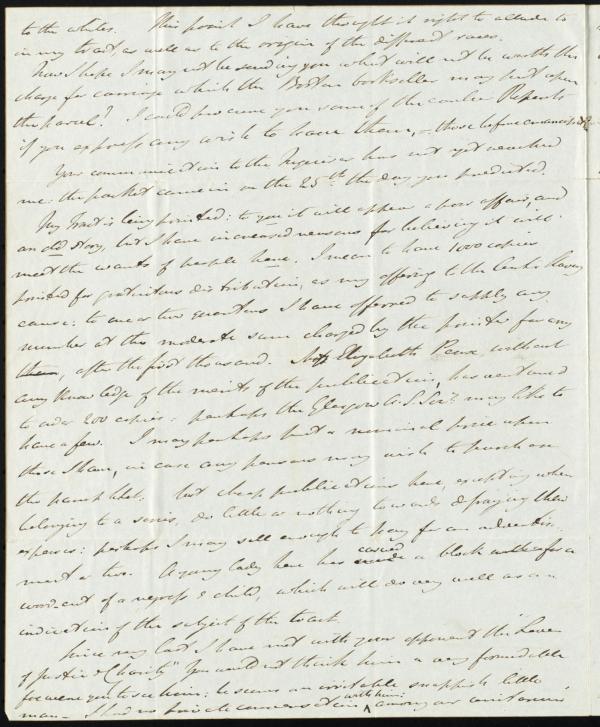 to the whites. This point I have thought it right to allude to
in my tract, as well as to the origin of the different races.
how I hope I may not be sending you what will not be worth the
charge for carriage which the Boston bookseller may put upon
the parcel? I could procure you some of the earlier Reports
if you express any wish to have them, - those before
Your communication to the Inquirer has not yet reached
me: the packet came in on the 25th the day you predicted.
My Tract is being printed: to you it will appear a poor affair, and
an old story, but I have increased reasons for believing it will
meet the wants of people here. I mean to have 1000 copies
printed for gratuitous distribution, as my offering to the Anti-Slavery
cause: to one or two quarters I have offered to supply any
number at the moderate sum charged by the printer for any
them, after the first thousand. Elizabeth Pease, without
any knowledge of the merits of the publication, has ventured
to order 200 copies: perhaps the Glasgow A. S. Soc.y may like to
have a few. I may perhaps put a nominal price upon
those I have, in case any persons may wish to purchase
the pamphlet: but cheap publications here, excepting when
belonging to a series, do little or nothing towards defraying their
expenses: perhaps I may sell enough to pay for an advertise-
ment or two. A young lady here has carved made a block for a
wood-cut of a negress & child, which will do very well as an
indication of the subject of the tract.
Since my last I have met with your opponent the "Lover
of Justice & Charity" You would not think him a very formidable
foe were you to see him: he seems an irritable snappish little
man - I had no private conversation with him: among our